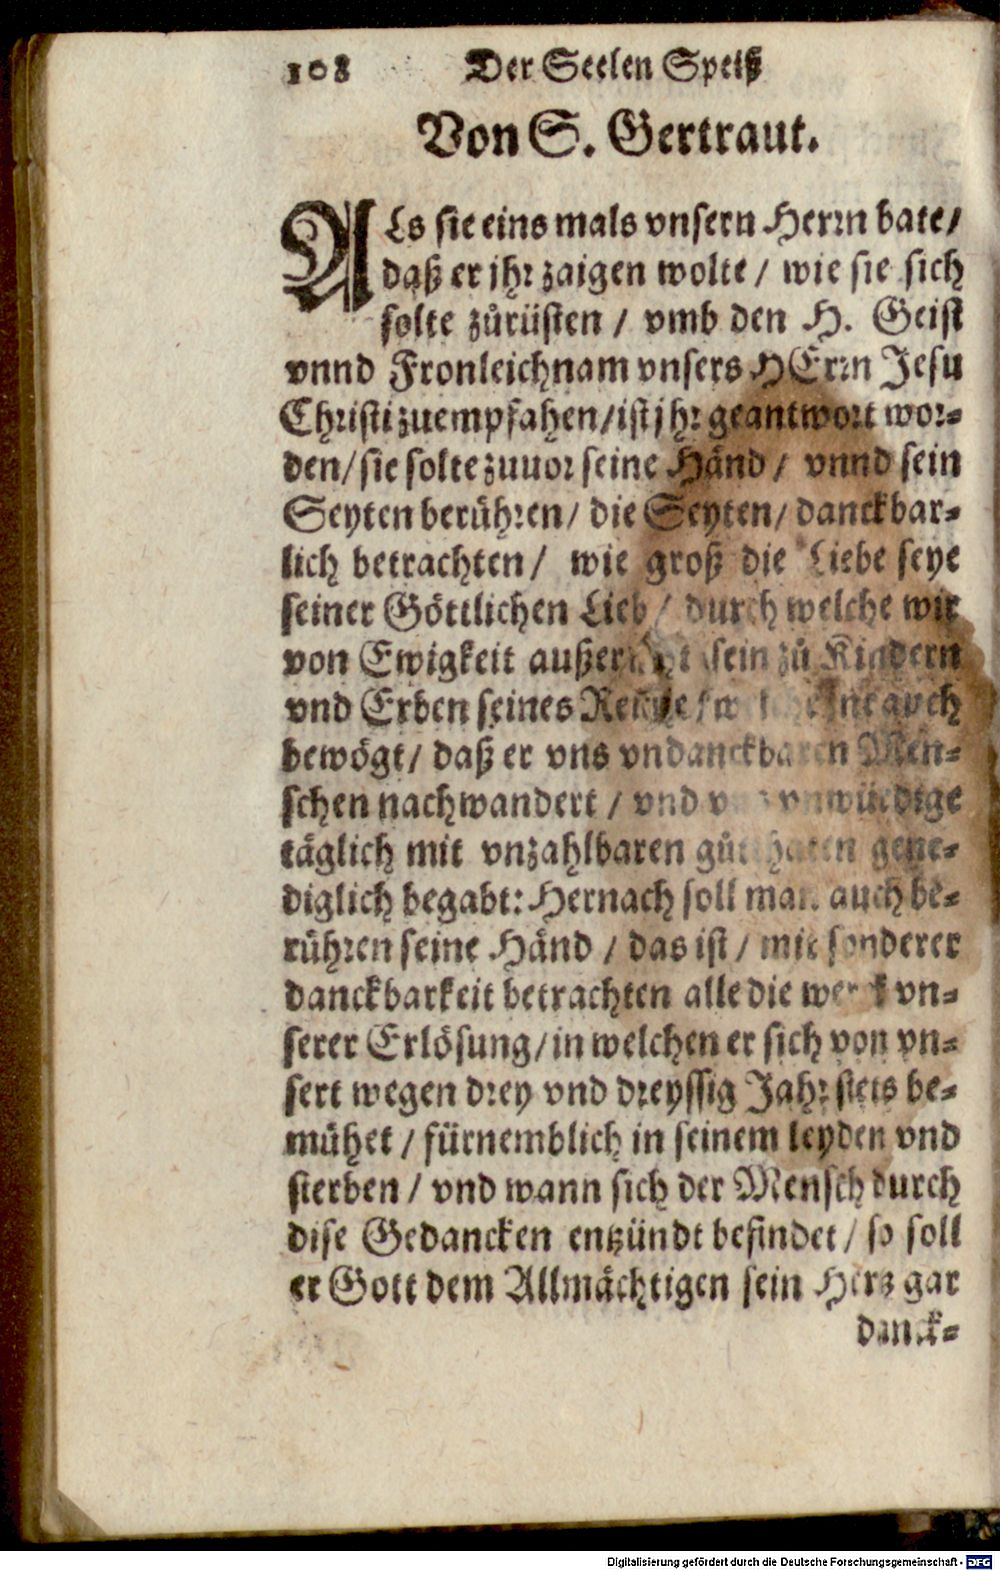 108 Der Seelen Speiß
Von S. Gertraut.
ALs sie eins mals vnsern Herrn bate/
daß er jhr zaigen wolte / wie sie sich
solte zůrüsten / vmb den H. Geist
vnnd Fronleichnam vnsers HErrn Jesu
Christi zuempfahen/ ist jhr geantwort wor-
den/ sie solte zuuor seine Händ / vnnd sein
Seyten berühren/ die Seyten/ danckbar-
lich betrachten/ wie groß die Liebe seye
seiner Göttlichen Lieb / durch welche wir
von Ewigkeit sein zů Kindern
vnd Erben seines auch
bewögt/ daß er vns vndanckbaren Men-
schen nachwandert / vnd vnwürdige
täglich mit vnzahlbaren gůtthaten gene-
diglich begabt: Hernach soll man auch be-
rühren seine Händ / das ist / mit sonderer
danckbarkeit betrachten alle die werck vn-
serer Erlösung/ in welchen er sich von vn-
sert wegen drey vnd dreyssig Jahr stets be-
mühet / fürnemblich in seinem leyden vnd
sterben / vnd wann sich der Mensch durch
dise Gedancken entzündt befindet / so soll
er Gott dem Allmächtigen sein Hertz gar
danck-
Digitalisierung gefördert durch die Deutsche Forschungsgemeinschaft - DFG